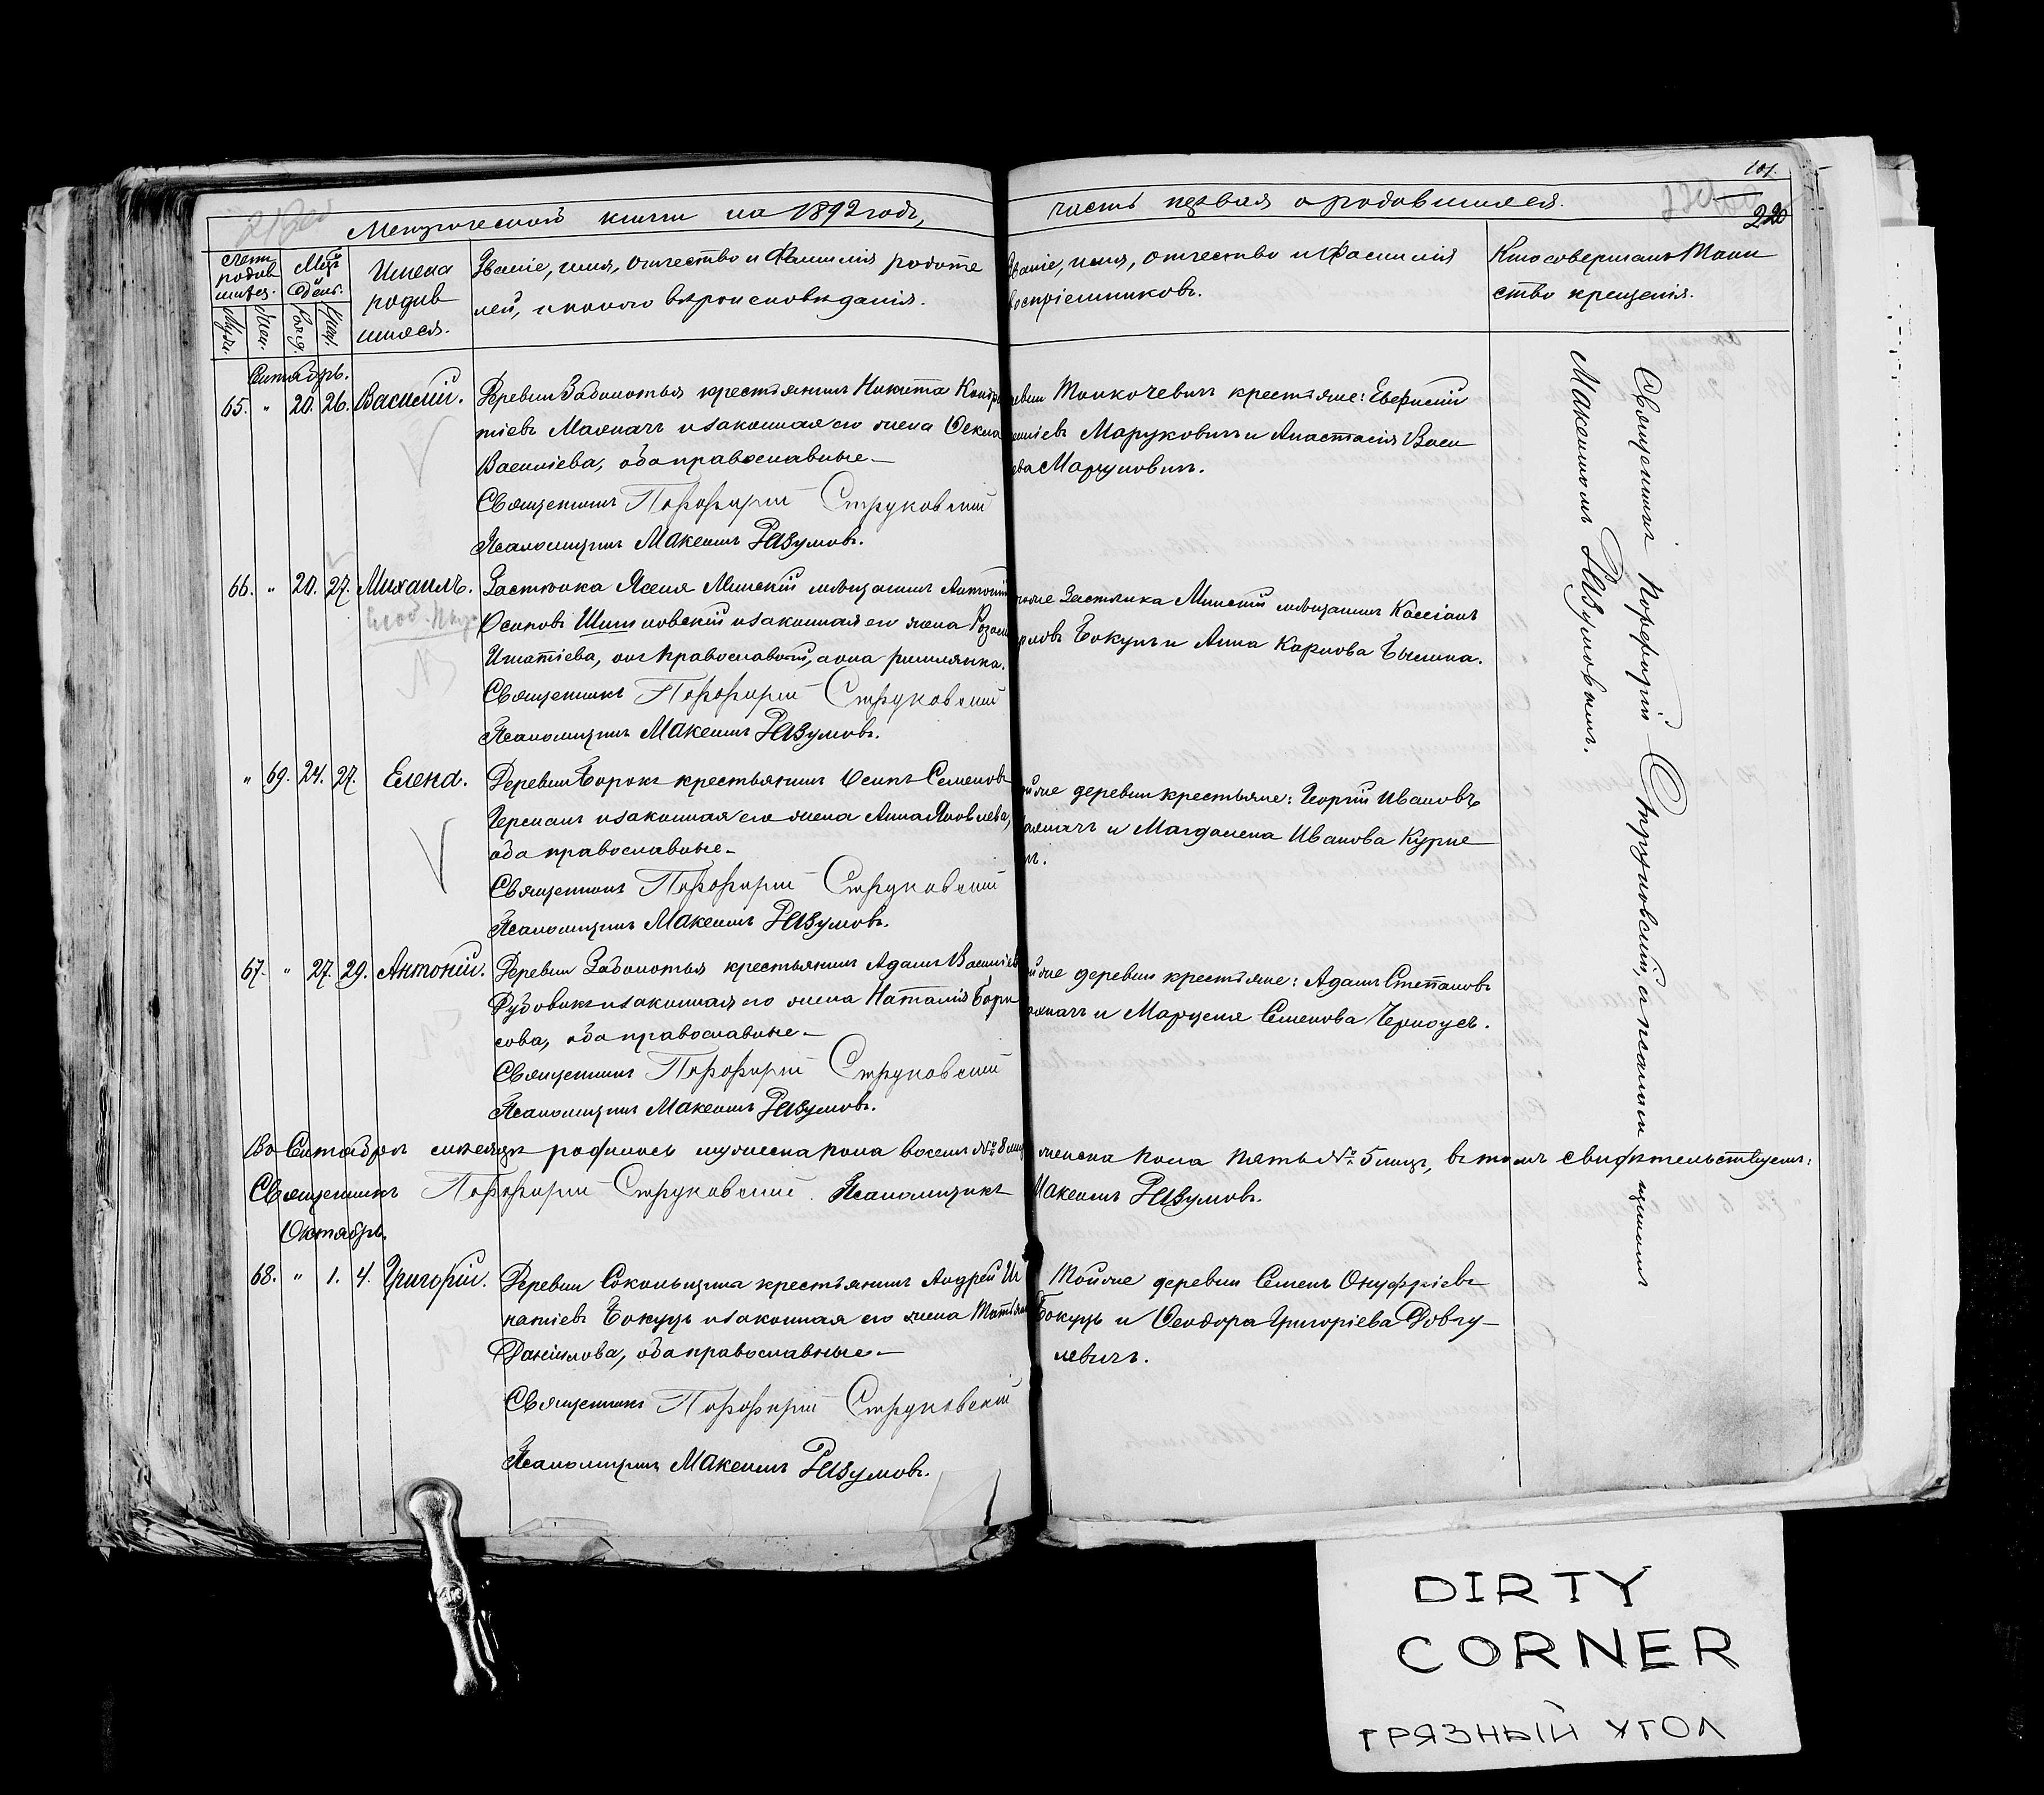 101.
220
Метрической книги на 1892 годъ,
часть первая о родившихся.
Счетъ родив шихся.
Муж.
Жен.
Мѣсяцъ и день.
Рожд.
Крещ.
Имена родив шихся.
Званіе, имя, отчество и Фамилія родите
лей, и какого вѣроисповѣданія.
Званіе, имя, отчество и Фамилія
воспріемниковъ.
Кто совершалъ Таин
ство крещенія.
Сентябрь.
65. " 20. 26. Василій. Деревни Заболотья крестьянинъ Никита Кондра
тіевъ Малячъ и законная его жена Ѳекла
Василіева, оба православные —
Священникъ Порфирій Струковскій
Псаломщикъ Максимъ Разумовъ.
Толкочевичъ крестьяне: Евфимій
Маруковичъ и Анастасія Васи
Маруковичъ.
66. " 20. 27. Михаилъ. Застѣнка Ясеня Минскій мѣщанинъ Антоній
Осиповъ Шишновскій и законная его жена Розалія
Игнатіева, онъ православный, а она римлянка.
Священникъ Порфирій Струковскій
Псаломщикъ Максимъ Разумовъ.
Застѣнка Минскій мѣщанинъ Кассіанъ
Бокучъ и Анна Карпова
" 69. 24. 27. Елена. Деревни Борокъ крестьянинъ Осипъ Семеновъ
Германъ и законная его жена Анна Яковлева,
оба православные —
Священникъ Порфирій Струковскій
Псаломщикъ Максимъ Разумовъ.
деревни крестьяне: Георгій Ивановъ
и Магдалена Иванова Курне
67. " 27. 29. Антоній. Деревни Заболотья крестьянинъ Адамъ Василіевъ
Дубовикъ и законная его жена Наталія Бори
сова, оба православные —
Священникъ Порфирій Струковскій
Псаломщикъ Максимъ Разумовъ.
деревни крестьяне: Адамъ Степановъ
и Марцеля Семенова Черноусъ.
Въ Сентябрѣ мѣсяцѣ родилось мужеска пола восемь № 8 лицъ
женска пола пять № 5 лицъ, въ томъ свидѣтельствуемъ:
Священникъ Порфирій Струковскій. Псаломщикъ
Максимъ Разумовъ.
Октябрь.
68. " 1. 4. Григорій. Деревни Сокольщина крестьянинъ Андрей Иг
натіевъ Бокуць и законная его жена Татьяна
Даніилова, оба православные —
Священникъ Порфирій Струковскій
Псаломщикъ Максимъ Разумовъ.
Той же деревни Семенъ Онуфріевъ
Бокуць и Ѳеодора Григоріева Довгу—
левичъ.
Священникъ Порфирій Струковскій, съ псаломщикомъ
Максимомъ Разумовымъ.
DIRTY
CORNER
ГРЯЗНЫЙ УГОЛ